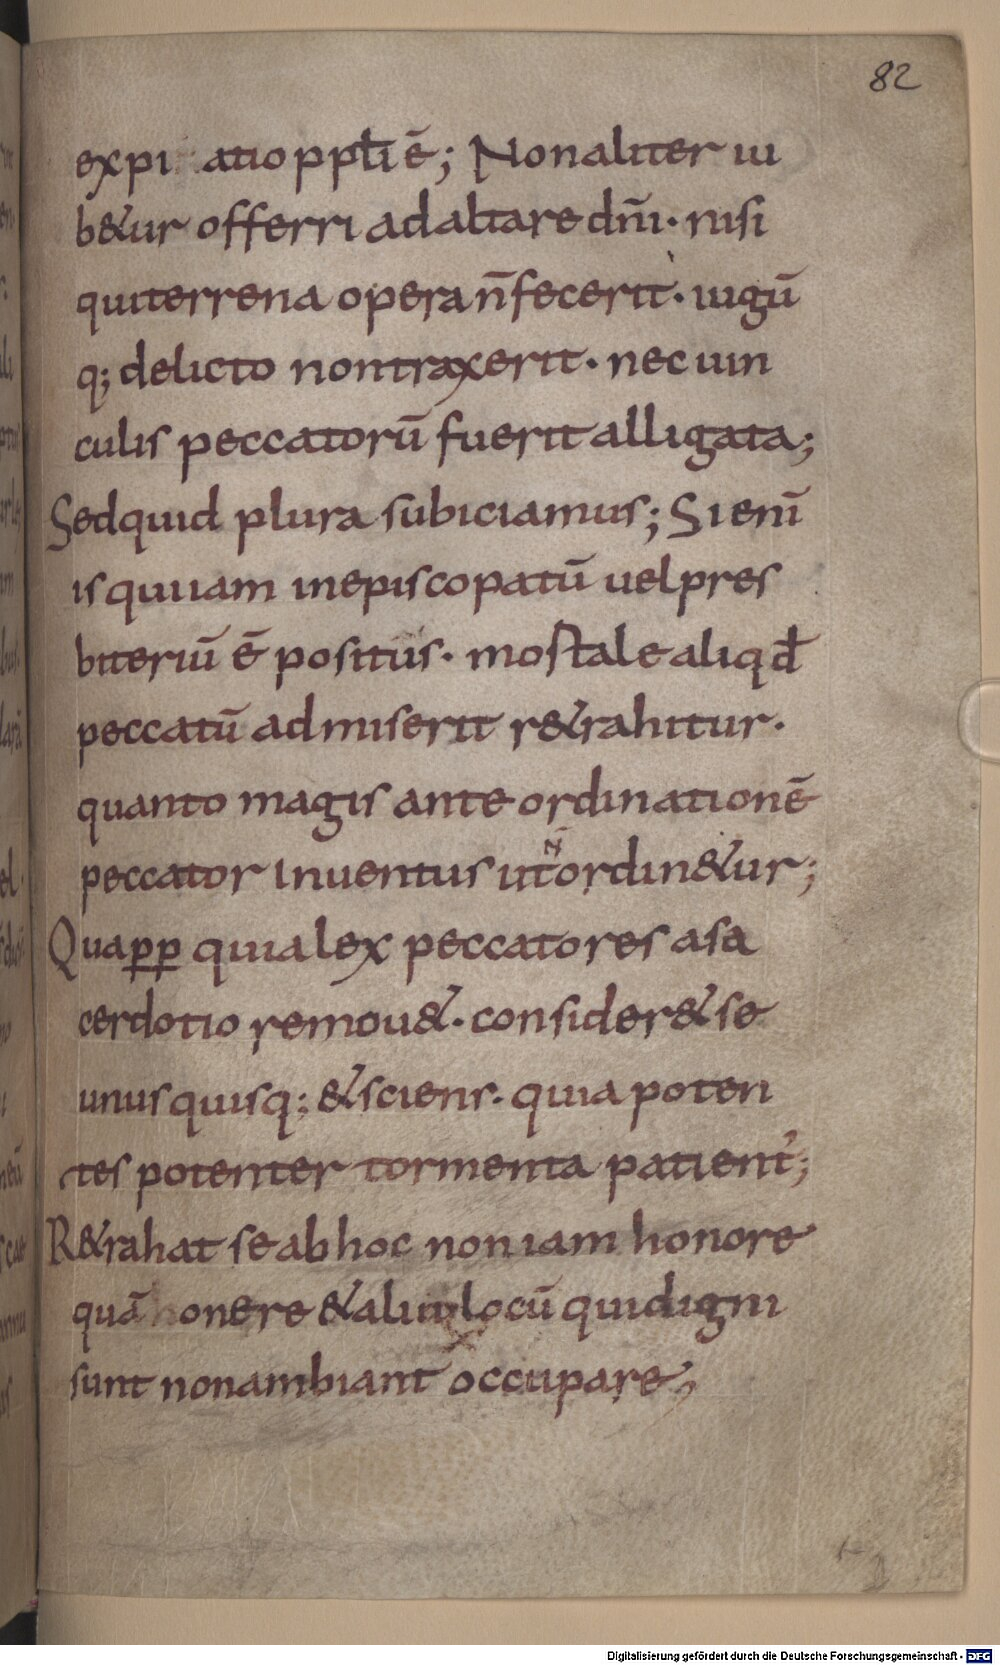 82
expi atio ppłi ē; Non aliter iu
b&ur offerri ad altare dn̄i· nisi
qui terrena opera n̄ fecerit· iugū
q; delicto non traxerit· nec uin
culis peccatorū fuerit alligata;
Sed quid plura subiciamus; Si enī
is qui iam in episcopatū uel pres
biteriū ē positus· mortale aliqđ
peccatū admiserit r&rahitur·
quanto magis ante ordinationē
peccator inuentus ut n̄ ordin&ur;
Quapp quia lex peccatores a sa
cerdotio remou&· consider& se
unus quisq; & sciens· quia poten
tes potenter tormenta patient᷑;
R&rahat se ab hoc non iam honore
quā onere & aliū locū qui digni
sunt non ambiant occupare;
Digitalisierung gefördert durch die Deutsche Forschungsgemeinschaft - DFG